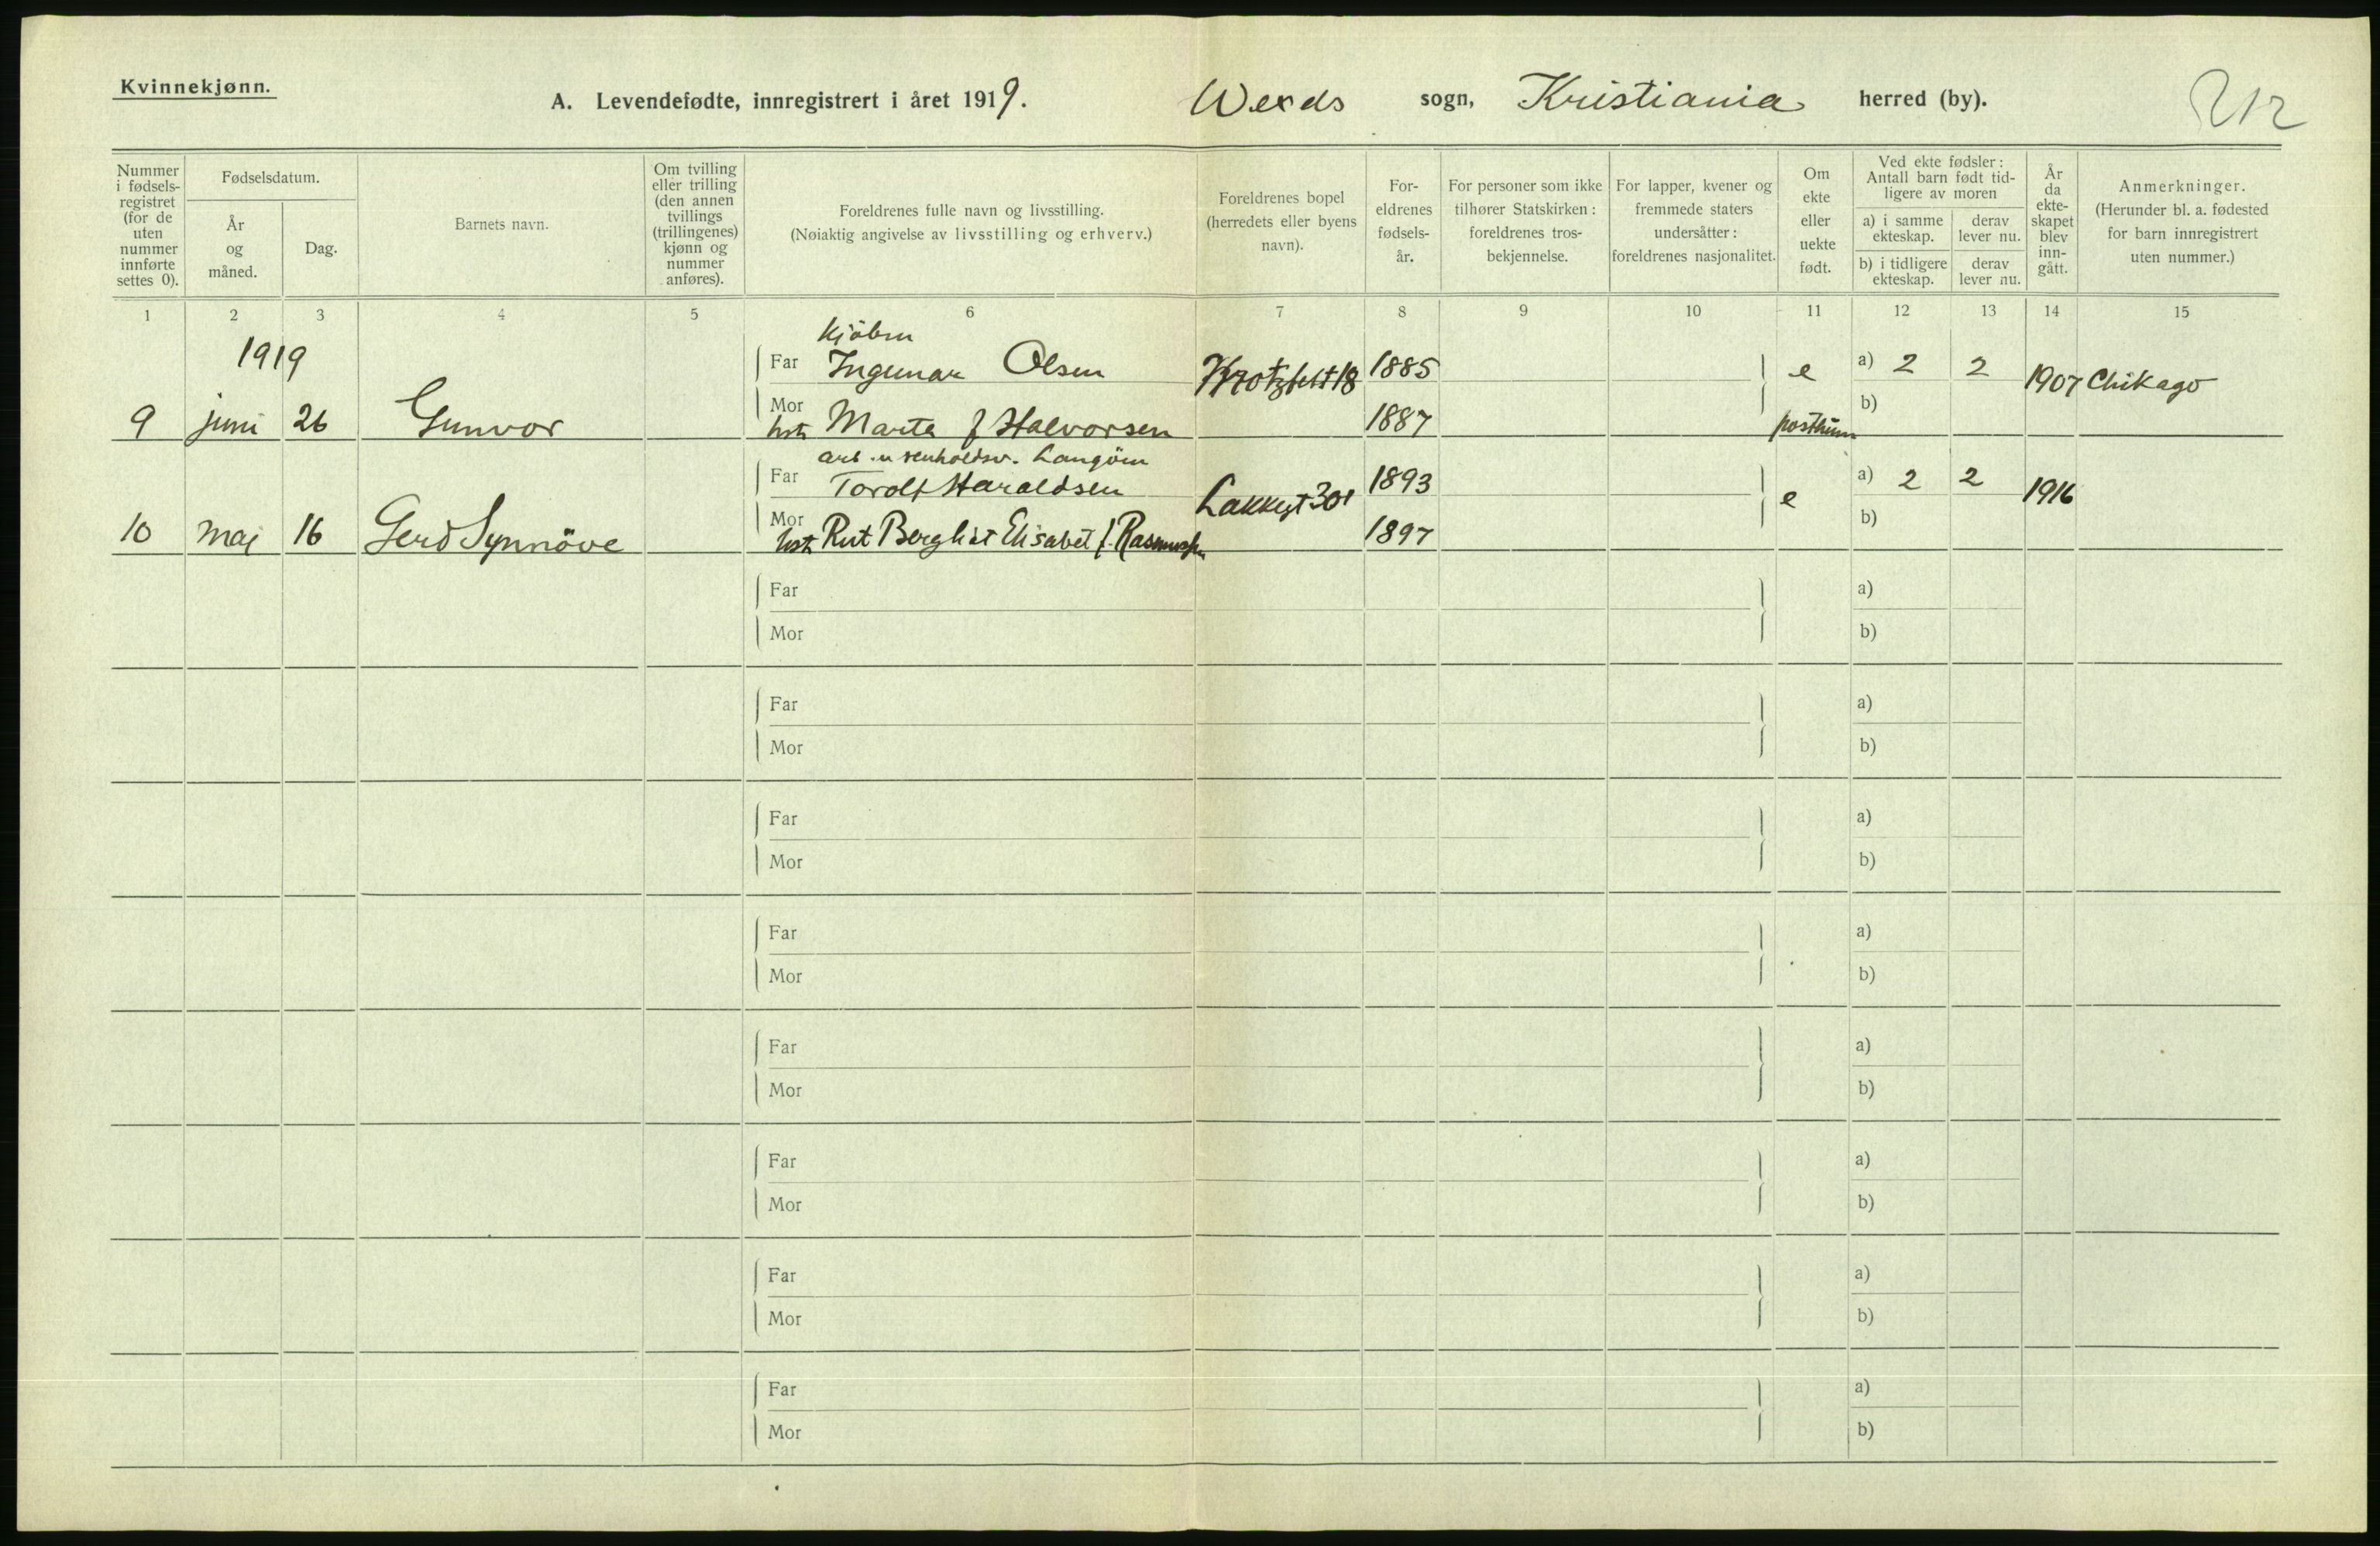 Kvinnekjønn.
A. Levendefødte, innregistrert i året 1919. Wexds sogn, Kristiania herred (by). 212
Nummer i fødsels-registret (for de uten nummer innførte settes 0).
Fødselsdatum.
År og måned.
Dag.
Barnets navn.
Om tvilling eller trilling (den annen tvillings (trillingenes) kjønn og nummer anføres).
Foreldrenes fulle navn og livsstilling.
(Nøiaktig angivelse av livsstilling og erhverv.)
Foreldrenes bopel (herredets eller byens navn).
For-eldrenes fødsels-år.
For personer som ikke tilhører Statskirken: foreldrenes tros-bekjennelse.
For lapper, kvener og fremmede staters undersåtter: foreldrenes nasjonalitet.
Om ekte eller uekte født.
Ved ekte fødsler: Antall barn født tid-ligere av moren
a) i samme ekteskap.
derav lever nu.
b) i tidligere ekteskap.
derav lever nu.
År da ekte-skapet blev inn-gått.
Anmerkninger.
(Herunder bl. a. fødested for barn innregistrert uten nummer.)
1 2 3 4 5 6 7 8 9 10 11 12 13 14 15
1919
kjöbm
Far Ingemar Olsen 1885 e a) 2 2 1907 Chikago
Mor
9 juni 26 Gunvor hst. Marta f Halvorsen 1887 posthum b)
arb. Langöen
Far Torolf Haraldsen Lakkegt 30I 1893 e a) 2 2 1916
Mor
10 maj 16 Gerd Synnöve hst. Rut Bergliot Elisabet f. Rasmussen 1897 b)
Far a)
Mor b)
Far a)
Mor b)
Far a)
Mor b)
Far a)
Mor b)
Far a)
Mor b)
Far a)
Mor b)
Far a)
Mor b)
Far a)
Mor b)